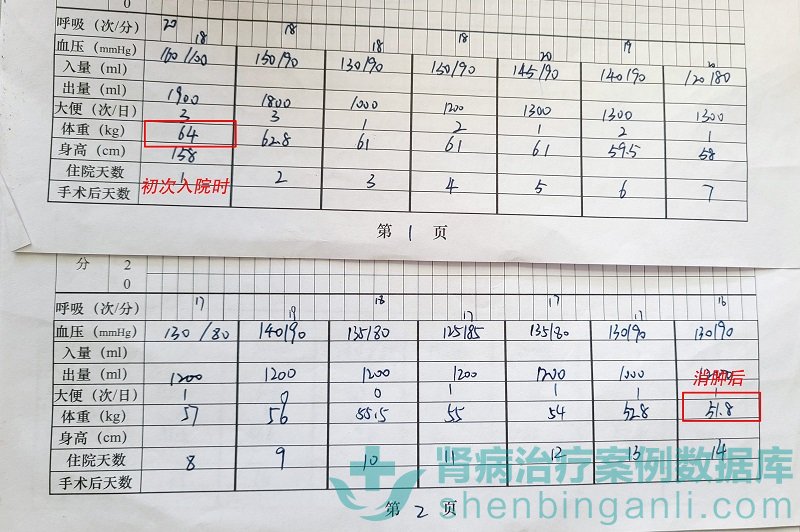 0
呼吸（次/分） 20 18 18 18 18 20 19
血压（mmHg） 160/100 150/90 130/90 150/90 145/90 140/90 120/80
入量（ml）
出量（ml） 1900 1800 1000 1200 1300 1300 1300
大便（次/日） 3 3 1 2 1 2 1
体重（kg） 64 62.8 61 61 61 59.5 58
身高（cm） 158
住院天数 1 2 3 4 5 6 7
初次入院时
手术后天数
第 1 页
分 2
0
呼吸（次/分） 17 19 18 17 17 17 16
血压（mmHg） 130/80 140/90 135/80 125/85 135/80 130/90 130/90
入量（ml）
出量（ml） 1200 1200 1200 1200 1200 1000
消肿后
大便（次/日） 1 0 0 1 1 1 1
体重（kg） 57 56 55.5 55 54 52.8 51.8
身高（cm）
住院天数 8 9 10 11 12 13 14
手术后天数
第 2 页
肾病治疗案例数据库
shenbinganli.com